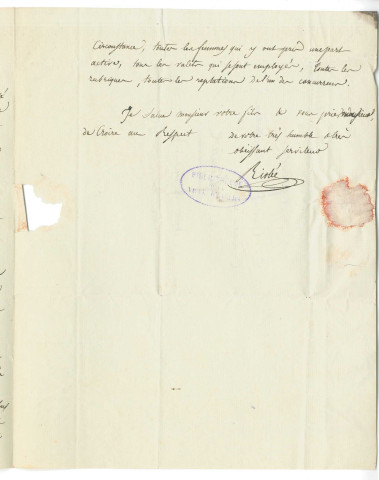 Circonstance, toutes les femmes qui y ont pris une part
active, tous les valets qui se sont employés, toutes les
rubriques, toutes les reputations de l'un des concurrens.
Je salue monsieur votre père & vous prie monsieur
de croire au Respect de votre très humble &
obéissant serviteur